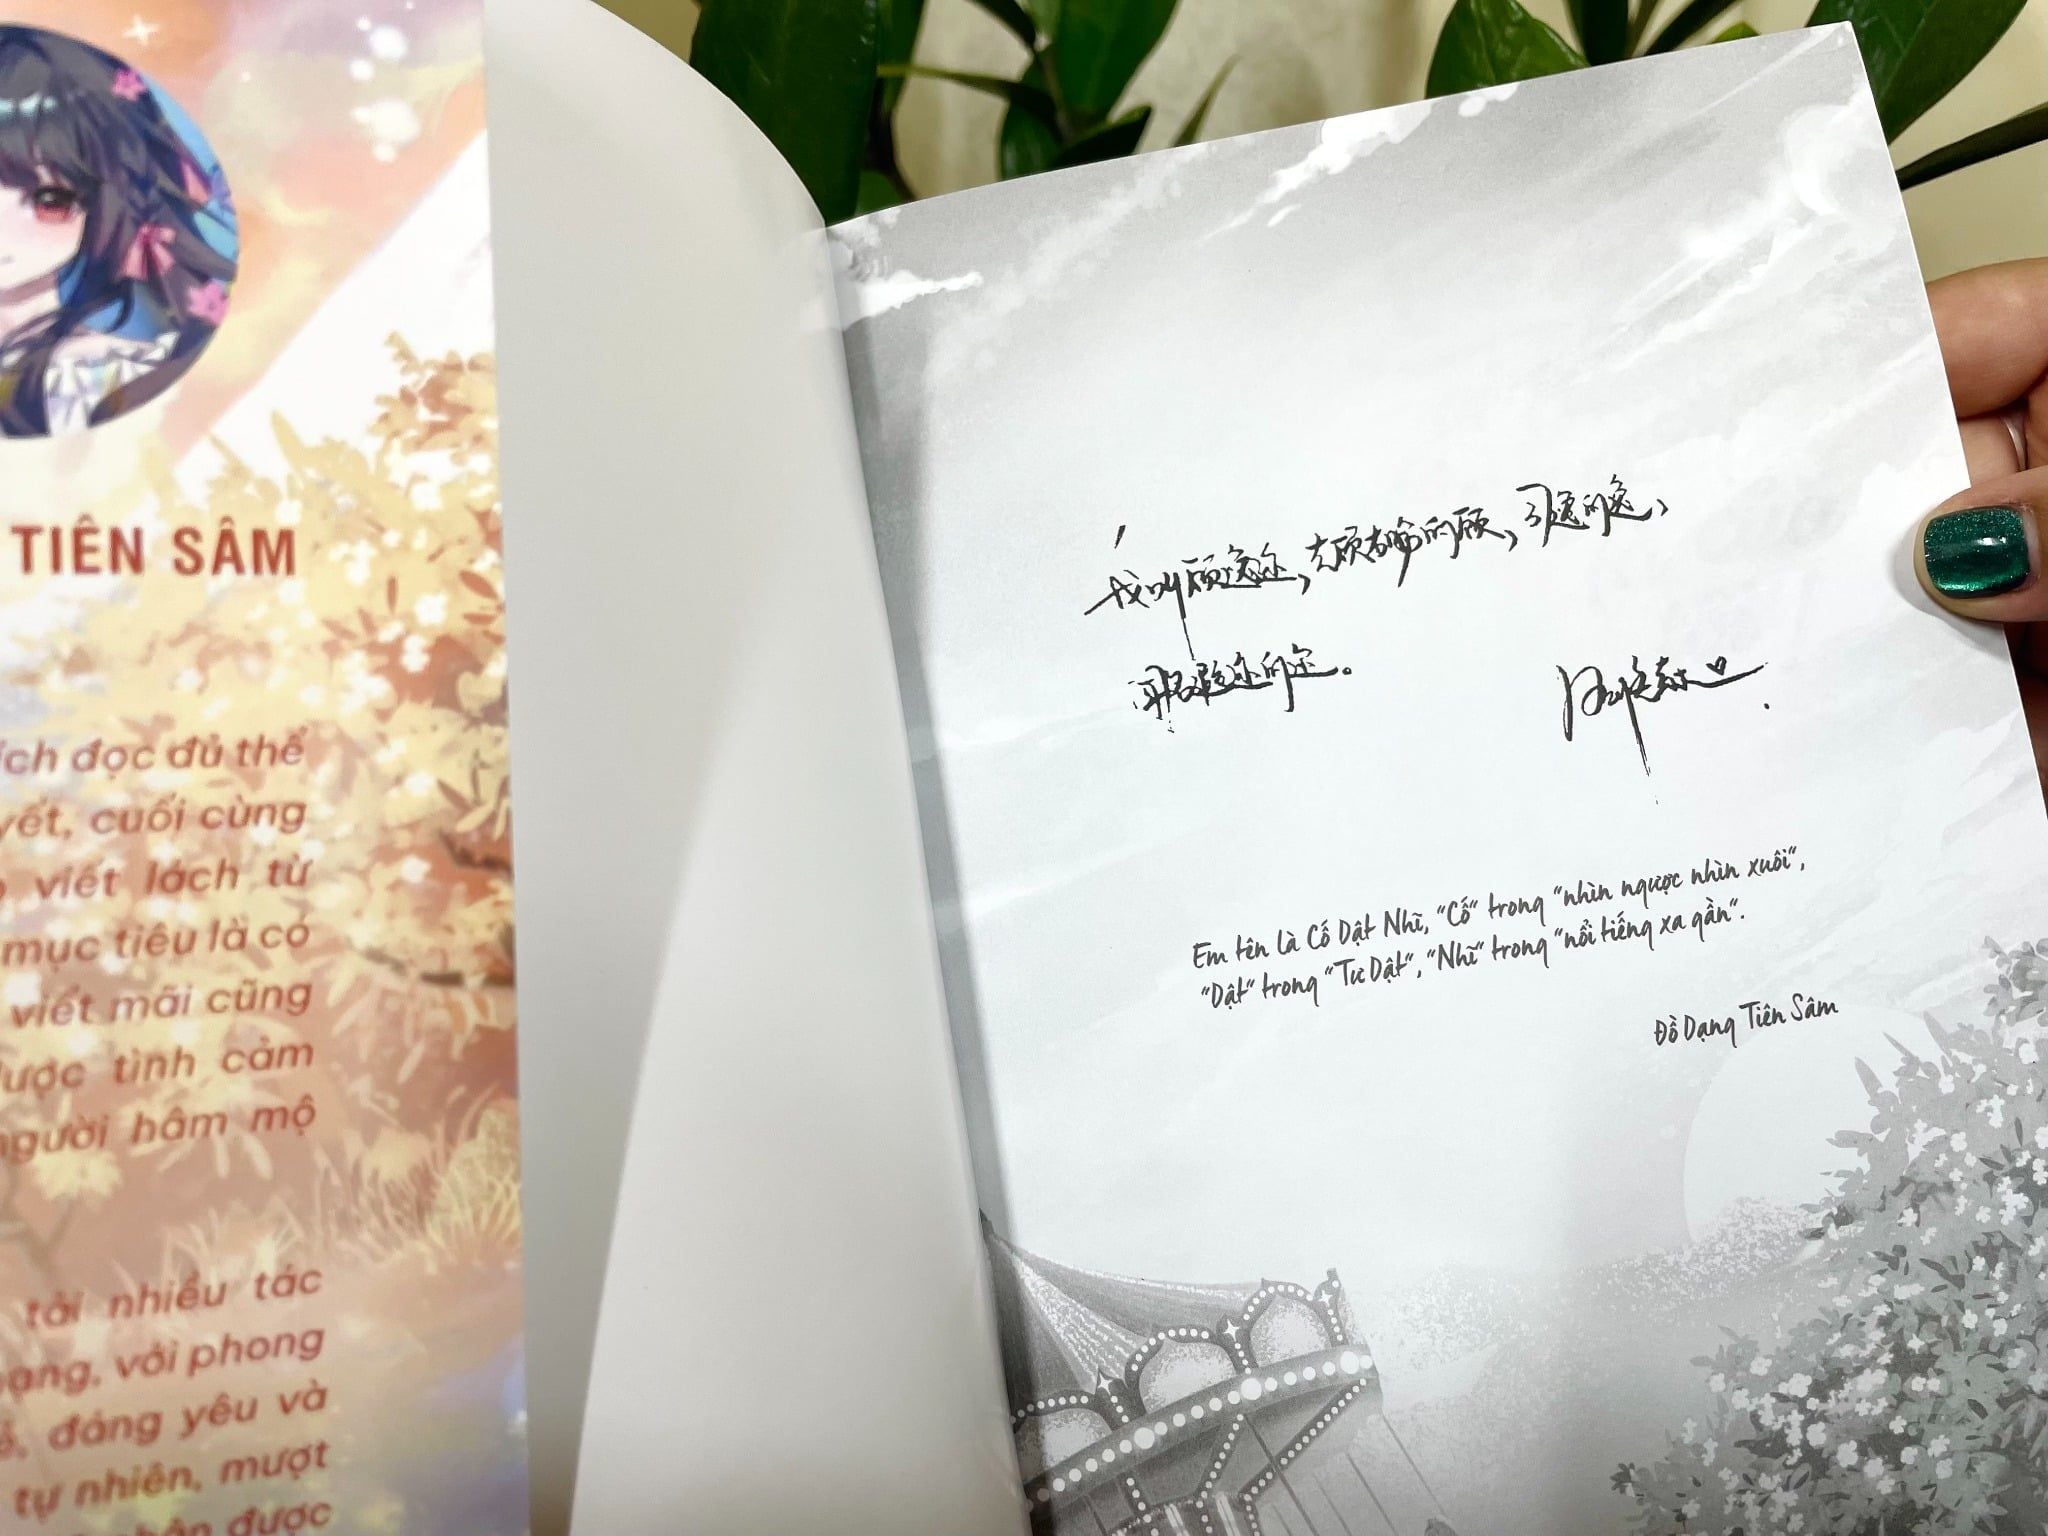 TIÊN SÂM
ích đọc đủ thể
yết, cuối cùng
viết lách từ
mục tiêu là có
viết mãi cũng
được tình cảm
người hâm mộ
tải nhiều tác
mạng, với phong
đáng yêu và
tự nhiên, mượt
nhận được
我叫顾逸尔，左顾右盼的顾，司逸的逸，
闻名遐迩的尔。
Em tên là Cố Dật Nhĩ, "Cố" trong "nhìn ngược nhìn xuôi",
"Dật" trong "Tư Dật", "Nhĩ" trong "nổi tiếng xa gần".
Đồ Dạng Tiên Sâm